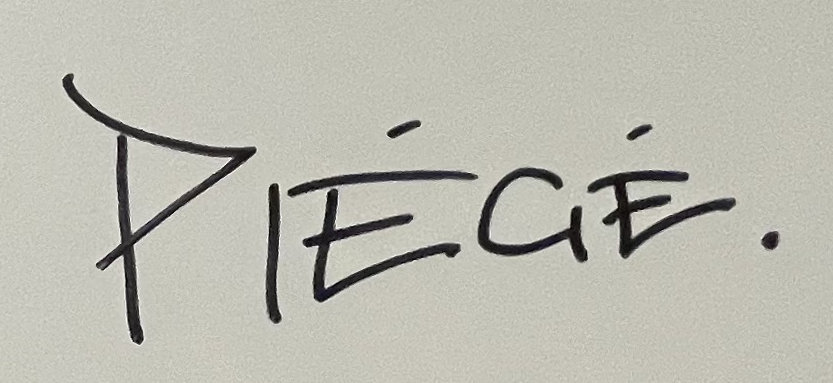 PIÉGÉ.